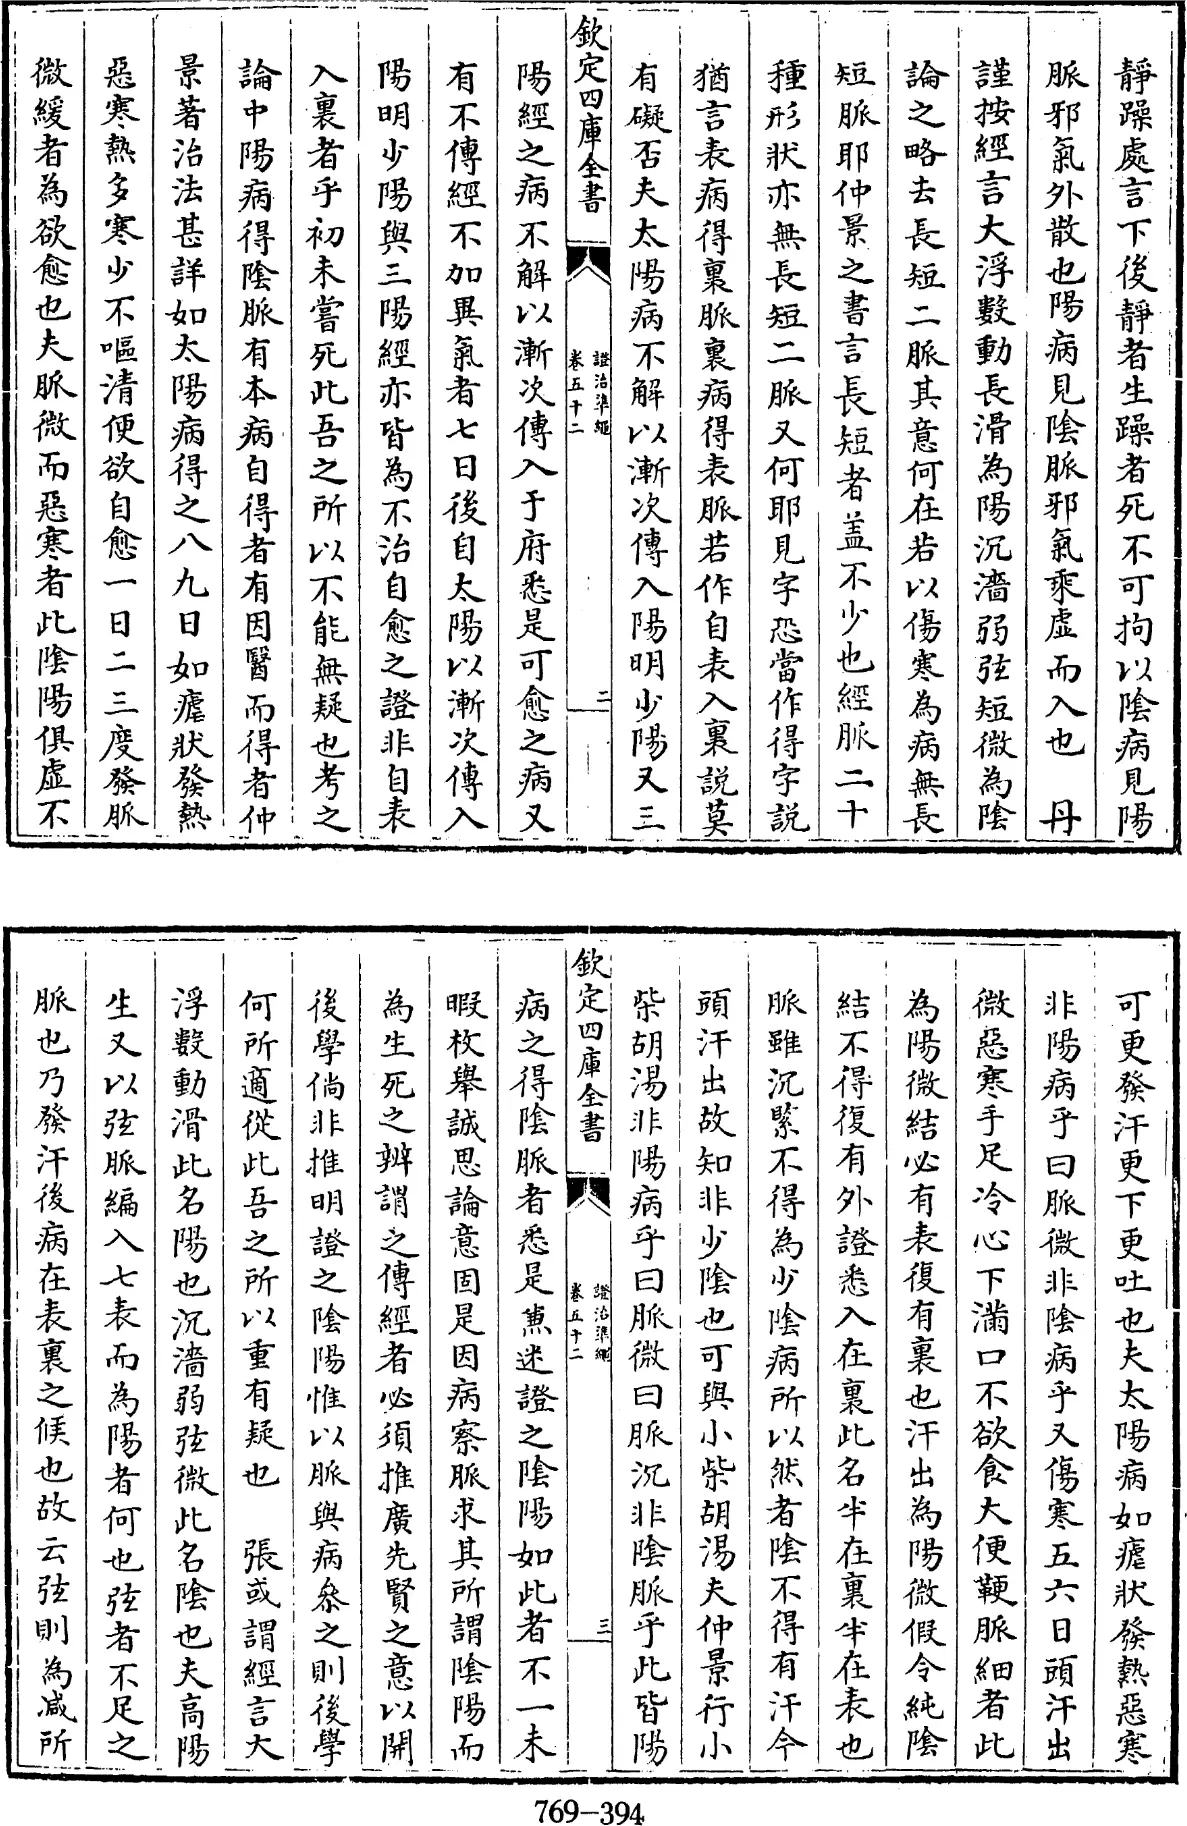 靜躁處言下後靜者生躁者死不可拘以陰病見陽
脈邪氣外散也陽病見陰脈邪氣乘虛而入也　丹
謹按經言大浮數動長滑為陽沉濇弱弦短微為陰
論之略去長短二脈其意何在若以傷寒為病無長
短脈耶仲景之書言長短者盖不少也經脈二十
種形狀亦無長短二脈又何耶見字恐當作得字說
猶言表病得裏脈裏病得表脈若作自表入裏説莫
有礙否夫太陽病不解以漸次傳入陽明少陽又三
欽定四庫全書
證治準繩
卷五十二
二
陽經之病不解以漸次傳入于府悉是可愈之病又
有不傳經不加異氣者七日後自太陽以漸次傳入
陽明少陽與三陽經亦皆為不治自愈之證非自表
入裏者乎初未嘗死此吾之所以不能無疑也考之
論中陽病得陰脈有本病自得者有因醫而得者仲
景著治法甚詳如太陽病得之八九日如瘧狀發熱
惡寒熱多寒少不嘔清便欲自愈一日二三度發脈
微緩者為欲愈也夫脈微而惡寒者此陰陽俱虛不
可更發汗更下更吐也夫太陽病如瘧狀發熱惡寒
非陽病乎曰脈微非陰病乎又傷寒五六日頭汗出
微惡寒手足冷心下滿口不欲食大便鞕脈細者此
為陽微結必有表復有裏也汗出為陽微假令純陰
結不得復有外證悉入在裏此名半在裏半在表也
脈雖沉緊不得為少陰病所以然者陰不得有汗今
頭汗出故知非少陰也可與小柴胡湯夫仲景行小
柴胡湯非陽病乎曰脈微曰脈沉非陰脈乎此皆陽
欽定四庫全書
證治準繩
卷五十二
三
病之得陰脈者悉是焦迷證之陰陽如此者不一未
暇枚舉誠思論意固是因病察脈求其所謂陰陽而
為生死之辨謂之傳經者必須推廣先賢之意以開
後學倘非推明證之陰陽惟以脈與病叅之則後學
何所適從此吾之所以重有疑也　張或謂經言大
浮數動滑此名陽也沉濇弱弦微此名陰也夫高陽
生又以弦脈編入七表而為陽者何也弦者不足之
脈也乃發汗後病在表裏之候也故云弦則為減所
769-394